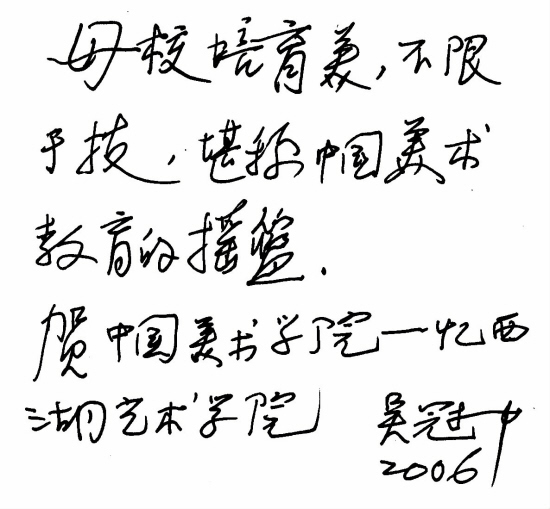 母校培育美,不限
于技,堪称中国美术
教育的摇篮.
贺中国美术学院一忆西
湖艺术学院 吴冠中
2006